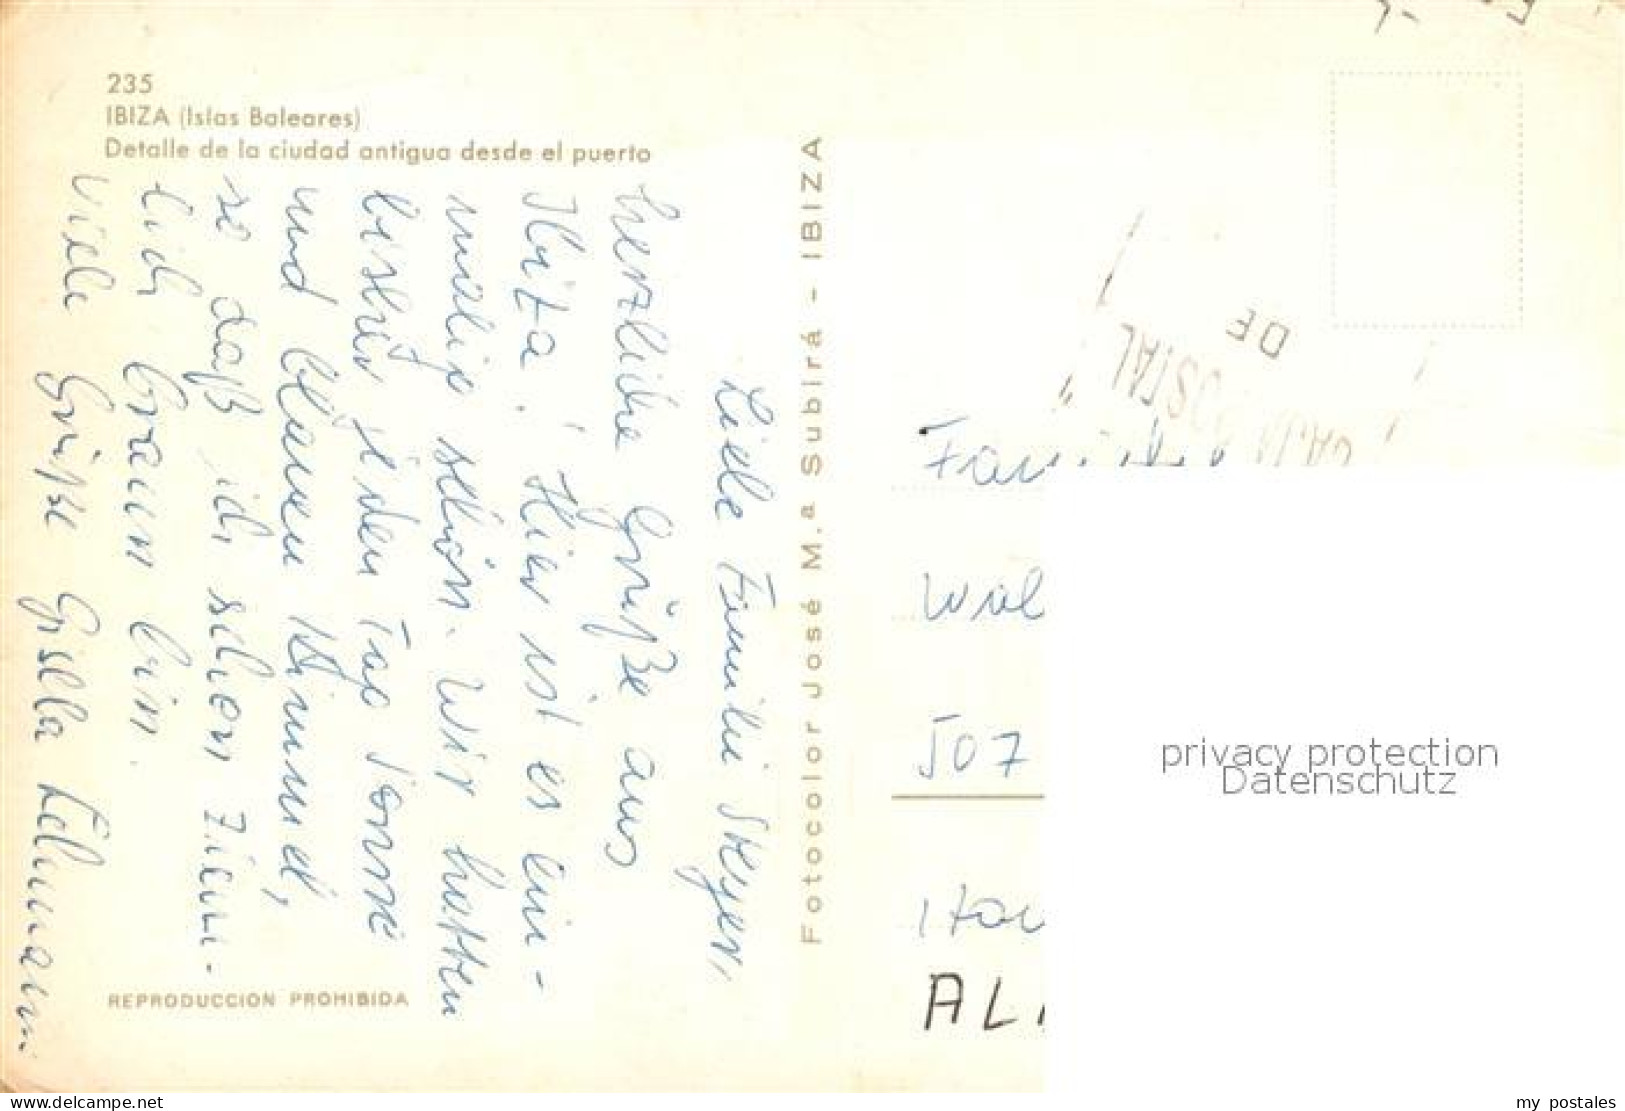 235
IBIZA (Islas Baleares)
Detalle de la ciudad antigua desde el puerto
Liebe Familie
herzliche Grüße aus
Ibiza. Hier ist es ein-
malig schön. Wir hatten
bisher jeden Tag Sonne
und blauen Himmel,
so daß ich schon ziem-
lich braun bin.
Viele Grüße Gisella
REPRODUCCION PROHIBIDA
Fotocolor José M.ª Subirá - IBIZA
DE
507
privacy protection
Datenschutz
www.delcampe.net
my_postales